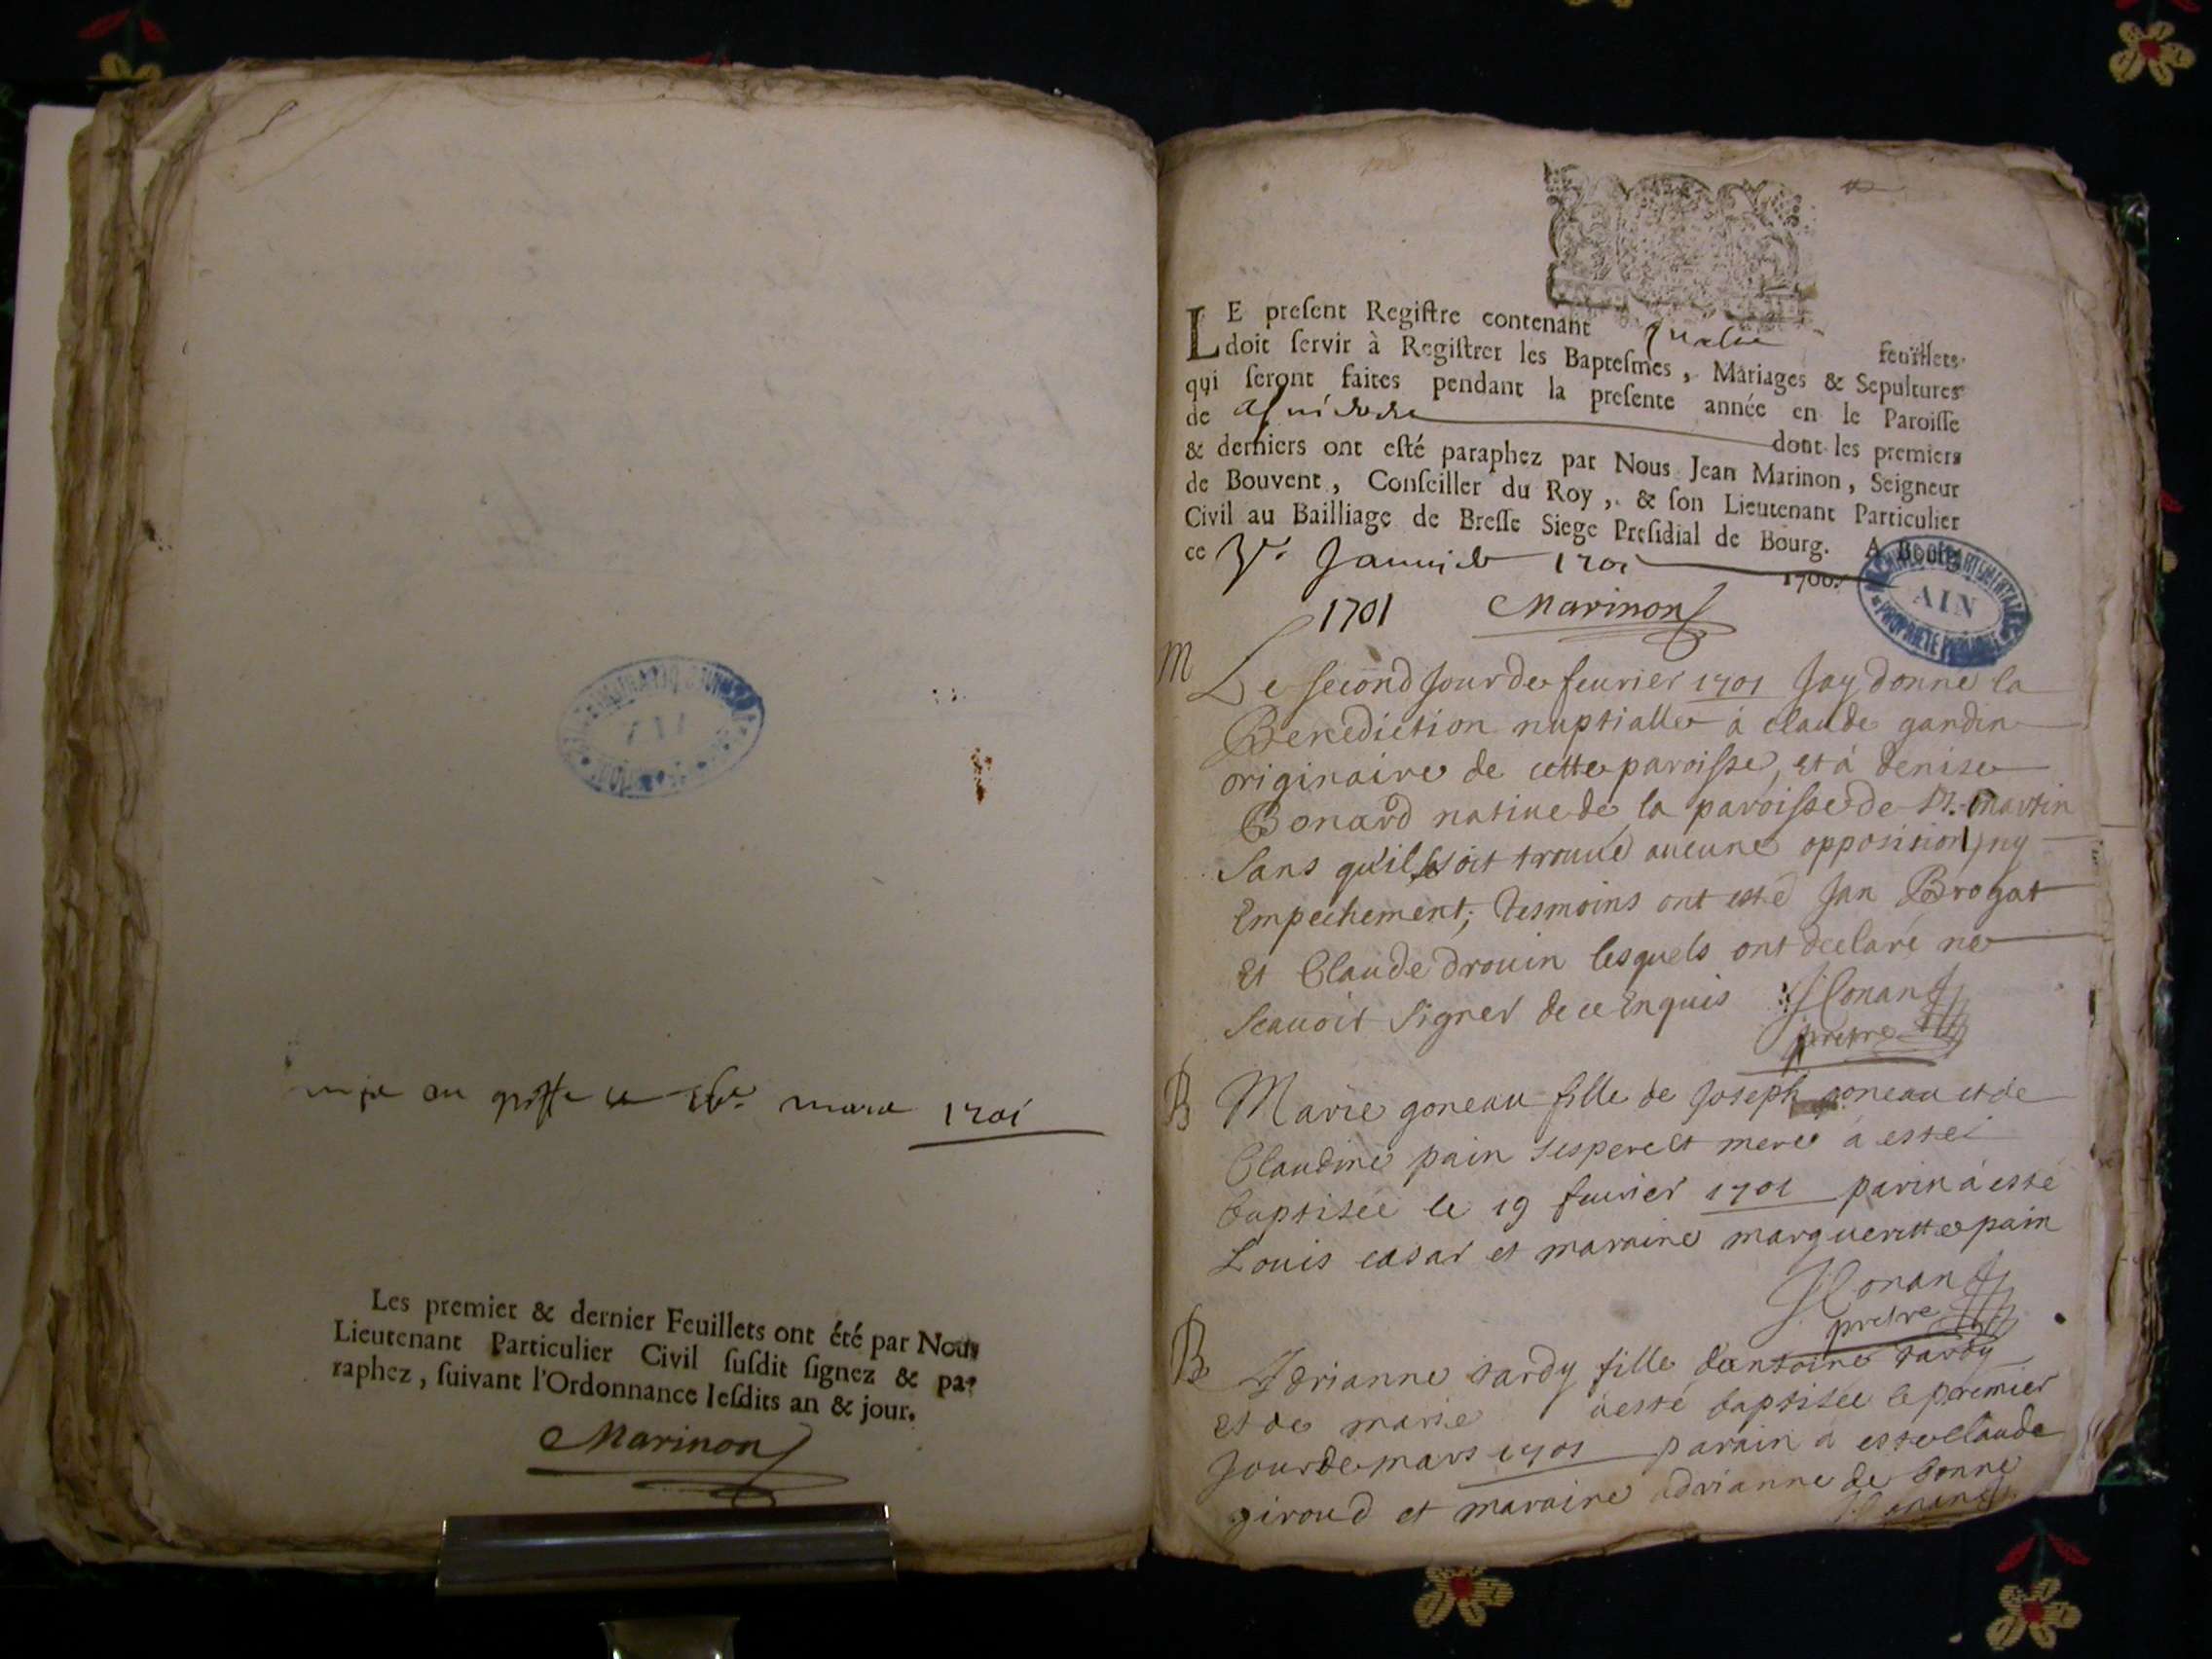 mis au greffe ce mars 1701
Les premier & dernier Feuillets ont été par Nous
Lieutenant Particulier Civil ſuſdit ſignez & pa-
raphez, ſuivant l'Ordonnance leſdits an & jour.
Marinon
LE preſent Regiſtre contenant quatre feuillets
doit ſervir à Regiſtrer les Bapteſmes, Mariages & Sepultures
qui ſeront faites pendant la preſente année en le Paroiſſe
de dont les premiers
& derniers ont eſté paraphez par Nous Jean Marinon, Seigneur
de Bouvent, Conſeiller du Roy, & ſon Lieutenant Particulier
Civil au Bailliage de Breſſe Siege Preſidial de Bourg. A Bourg
ce 3e. Janvier 1701 1700.
1701 Marinon
ARCHIVES DEPARTEMENTALES
AIN
PROPRIETE PUBLIQUE
M Le second Jour de feurier 1701 Jay donné la
Benediction nuptialle à claude gandin
originaire de cette paroisse, et à denise
Bonard natiue de la paroisse de St. martin
Sans qu'il se soit trouué aucune opposition, ny
Empechement; tesmoins ont esté Jan Brogat
Et Claude drouin lesquels ont declaré ne
Scauoir signer de ce Enquis Conand
pretre
B Marie goneau fille de Joseph goneau et de
Claudine pain ses pere et mere a esté
baptisée le 19 feurier 1701 parin à esté
Louis casar et maraine margueritte pain
Conand
pretre
B Adrianne tardy fille dantoine tardy
et de marie à esté baptisée le premier
Jour de mars 1701 parain a esté claude
giroud et maraine adrianne de bonne
Conand